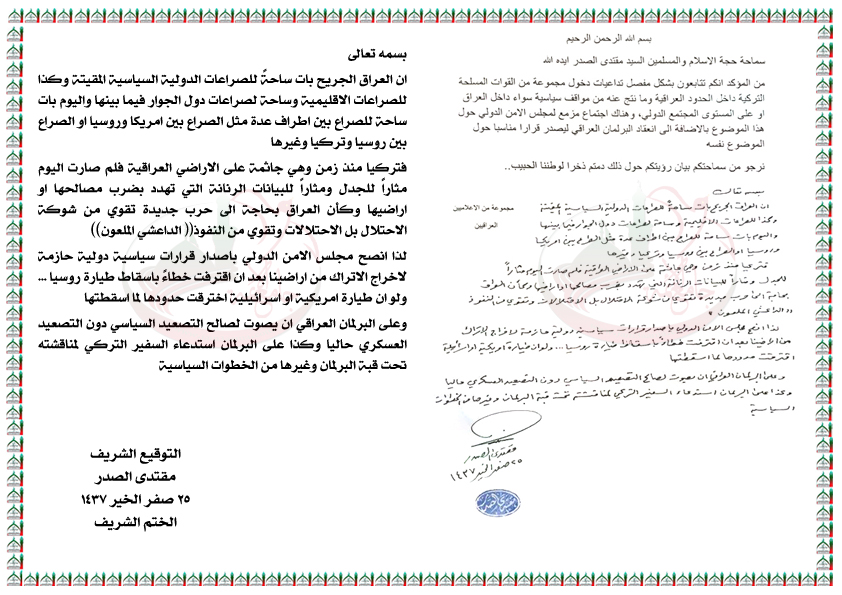 بسم الله الرحمن الرحيم
سماحة حجة الاسلام والمسلمين السيد مقتدى الصدر ايده الله
من المؤكد انكم تتابعون بشكل مفصل تداعيات دخول مجموعة من القوات المسلحة
التركية داخل الحدود العراقية وما نتج عنه من مواقف سياسية سواء داخل العراق
او على المستوى المجتمع الدولي، وهناك اجتماع مزمع لمجلس الامن الدولي حول
هذا الموضوع بالاضافة الى انعقاد البرلمان العراقي ليصدر قرارا مناسبا حول
الموضوع نفسه
نرجو من سماحتكم بيان رؤيتكم حول ذلك دمتم ذخرا لوطننا الحبيب..
مجموعة من الاعلاميين
العراقيين
بسمه تعالى
ان العراق الجريح بات ساحة للصراعات الدولية السياسية المقيتة
وكذا للصراعات الاقليمية وساحة لصراعات دول الجوار فيما بينها
واليوم بات ساحة للصراع بين اطراف عدة مثل الصراع بين امريكا
وروسيا او الصراع بين روسيا وتركيا وغيرها
فتركيا منذ زمن وهي جاثمة على الاراضي العراقية فلم صارت اليوم مثاراً
للجدل ومثاراً للبيانات الرنانة التي تهدد بضرب مصالحها او اراضيها وكأن العراق
بحاجة الى حرب جديدة تقوي من شوكة الاحتلال بل الاحتلالات وتقوي من النفوذ
((الداعشي الملعون))
لذا انصح مجلس الامن الدولي باصدار قرارات سياسية دولية حازمة لاخراج الاتراك
من اراضينا بعد ان اقترفت خطاءً باسقاط طيارة روسيا ... ولو ان طيارة امريكية او اسرائيلية
اخترقت حدودها لما اسقطتها
وعلى البرلمان العراقي ان يصوت لصالح التصعيد السياسي دون التصعيد العسكري حاليا
وكذا على البرلمان استدعاء السفير التركي لمناقشته تحت قبة البرلمان وغيرها من الخطوات
السياسية
مقتدى الصدر
٢٥ صفر الخير ١٤٣٧
بسمه تعالى
ان العراق الجريح بات ساحةً للصراعات الدولية السياسية المقيتة وكذا
للصراعات الاقليمية وساحة لصراعات دول الجوار فيما بينها واليوم بات
ساحة للصراع بين اطراف عدة مثل الصراع بين امريكا وروسيا او الصراع
بين روسيا وتركيا وغيرها
فتركيا منذ زمن وهي جاثمة على الاراضي العراقية فلم صارت اليوم
مثاراً للجدل ومثاراً للبيانات الرنانة التي تهدد بضرب مصالحها او
اراضيها وكأن العراق بحاجة الى حرب جديدة تقوي من شوكة
الاحتلال بل الاحتلالات وتقوي من النفوذ(( الداعشي الملعون))
لذا انصح مجلس الامن الدولي باصدار قرارات سياسية دولية حازمة
لاخراج الاتراك من اراضينا بعد ان اقترفت خطاءً باسقاط طيارة روسيا ...
ولو ان طيارة امريكية او اسرائيلية اخترقت حدودها لما اسقطتها
وعلى البرلمان العراقي ان يصوت لصالح التصعيد السياسي دون التصعيد
العسكري حاليا وكذا على البرلمان استدعاء السفير التركي لمناقشته
تحت قبة البرلمان وغيرها من الخطوات السياسية
التوقيع الشريف
مقتدى الصدر
٢٥ صفر الخير ١٤٣٧
الختم الشريف